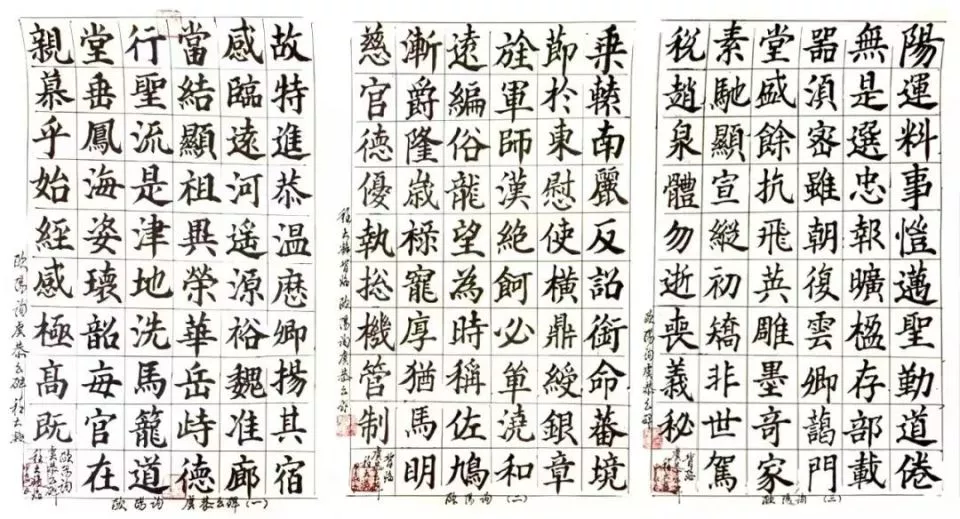 故特進恭温厯卿揚其宿
感臨遠河遥源裕魏准廊
當結顯祖異榮華岳峙德
行聖流是津地洗馬籠道
堂垂鳳海姿瓌韶每官在
親慕乎始經感極高既
歐陽詢虞恭公碑
歐陽詢 虞恭公碑（一）
乗轅南麗反詔銜命蕃境
節於東慰使橫鼎綬銀章
軍師漢絶餉必單澆和
遠編俗龍望為時稱佐鳩
漸爵隆歳祿寵厚猶馬明
慈官德優執揔機管制
歐陽詢虞恭公碑
歐陽詢（二）
陽運料事愷邁聖勤道倦
無是選忠報曠楹存部載
器湏密雖朝復雲卿謁門
堂盛餘抗飛英雕墨奇家
素馳顯宣縱初矯非世駕
税趙泉體勿逝喪義秘
歐陽詢虞恭公碑
歐陽詢（三）